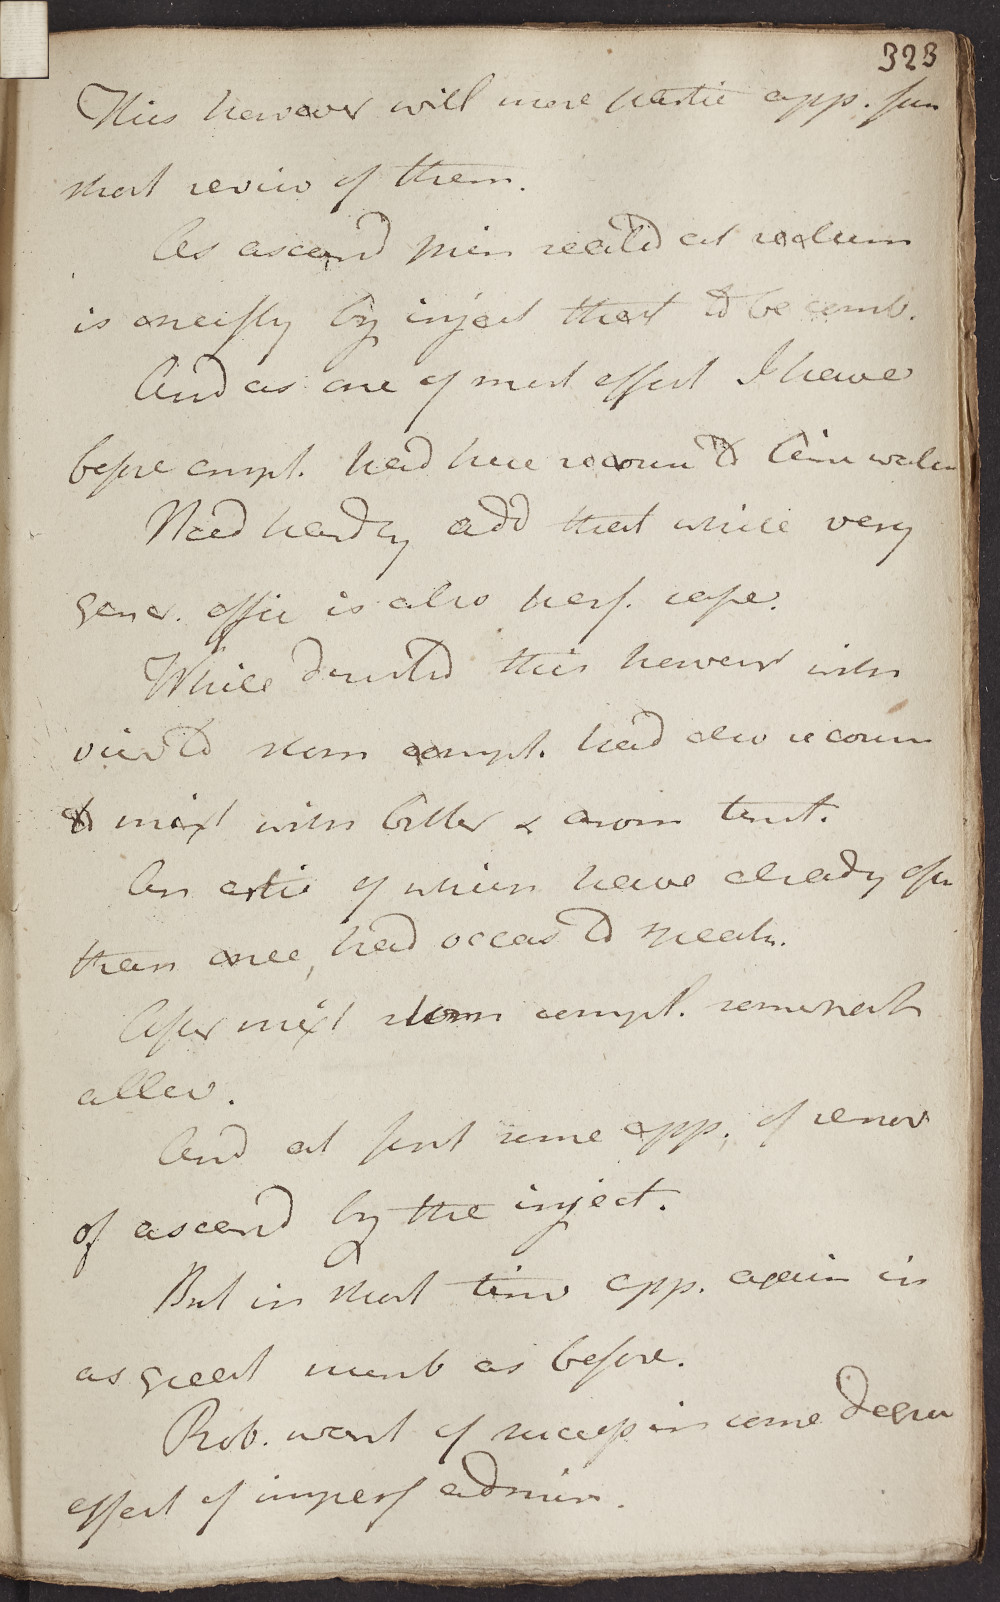 323
This however will more partic app. from
short review of them.
As ascarid when seated at rectum
is chiefly by inject that to be comb.
And as one of most effect I have
before empl. had here recour to Lime water
Need hardly add that while very
gener. effic is also perf. safe.
While directed this however with
view to stom compl. had also recour
to mixt with bitter & arom tinct.
An artic of which have already ofn
than once, had occas to speak.
After mixt stom compl. somewhat
allev.
And at first some app. of remov
of ascarid by the inject.
But in short time app. again in
as great numb as before.
Prob. want of success in some degree
effect of imperf admin.